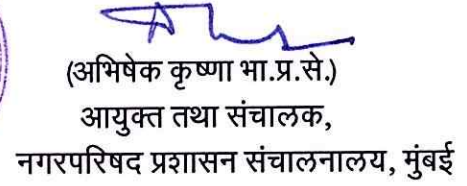 (अभिषेक कृष्णा भा.प्र.से.)
आयुक्त तथा संचालक,
नगरपरिषद प्रशासन संचालनालय, मुंबई